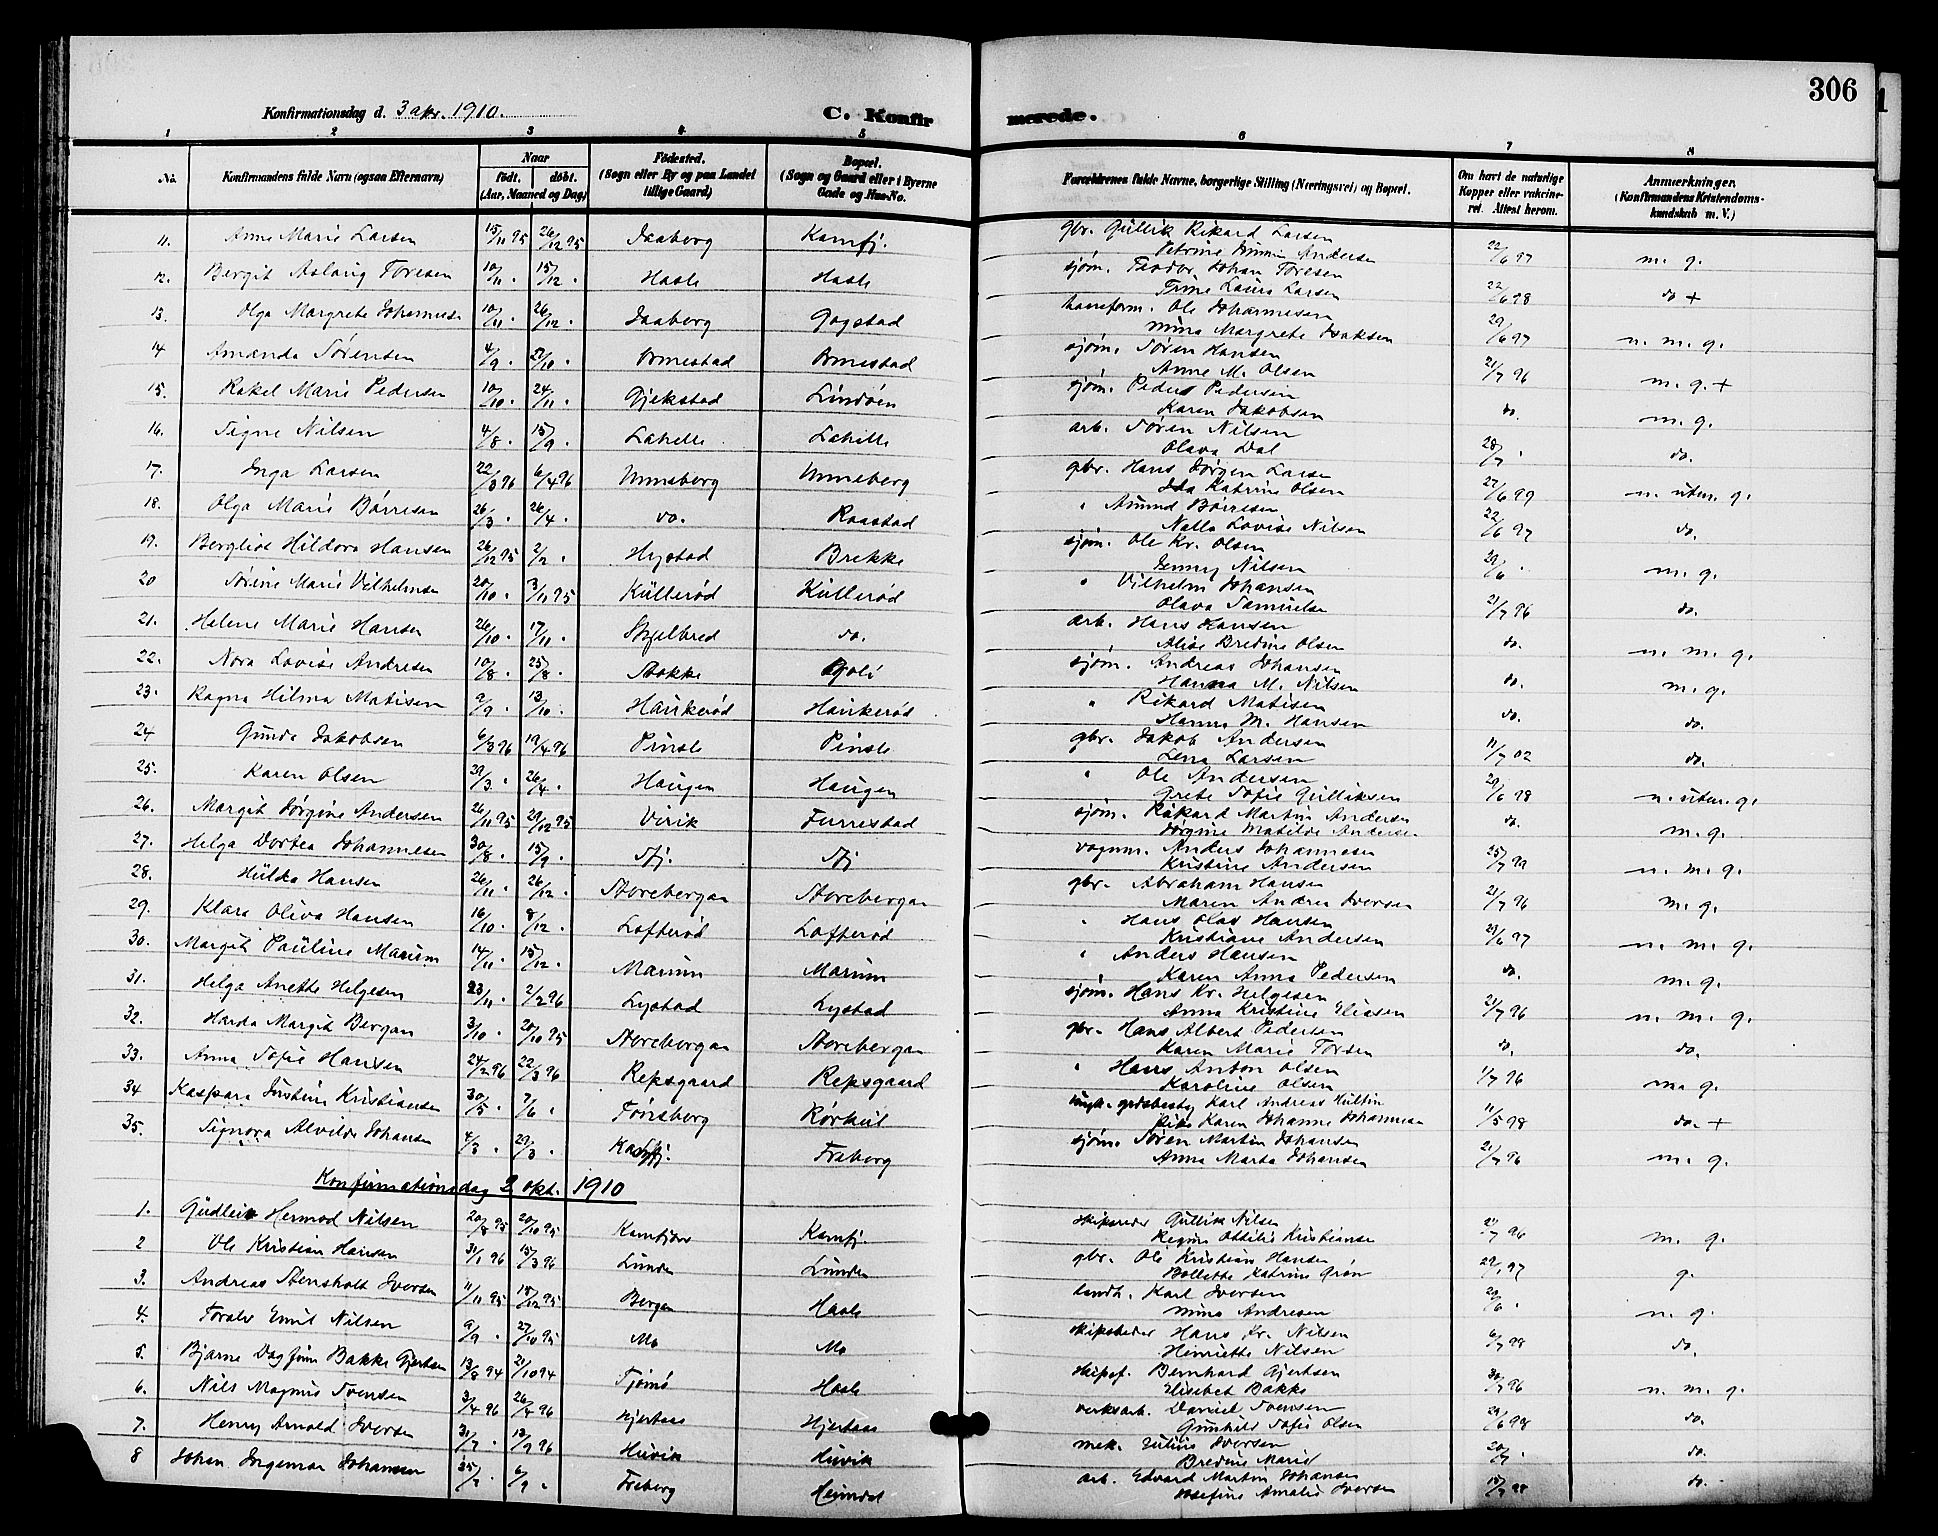 306
Konfirmationsdag d. 3 apr. 1910.
C. Konfirmerede.
1 2 3 4 5 6 7 8
No. Konfirmandens fulde Navn (ogsaa Efternavn) Naar født. døbt. (Aar, Maaned og Dag) Fødested. (Sogn eller By og paa Landet tillige Gaard) Bopæl. (Sogn og Gaard eller i Byerne Gade og Hus-No. Forældrenes fulde Navne, borgerlige Stilling (Næringsvei) og Bopæl. Om havt de naturlige Kopper eller vakcineret. Attest herom. Anmærkninger. (Konfirmandens Kristendomskundskab m. V.)
11. Anne Marie Larsen 15/11 95 26/12 95 Kamfj. gbr. Gullik Rikard Larsen
Andersen 22/6 97 m. g.
12. Bergit Aslaug Toresen 10/11 15/12 Hasle Hasle sjøm. Teodor Johan Toresen
Trine Laura Larsen 22/6 98 do +
13. Olga Margrete Johannesen 10/11 26/12 Gogstad Ole Johannesen
Mina Margrete Isaksen 29/6 97 n. m. g.
14 Amanda Sørensen 4/9 27/10 Ormestad Ormestad sjøm. Søren Hansen
Anne M. Olsen 21/7 96 m. g. +
15. Rakel Marie Pedersen 10/10 24/11 Gjekstad Lindöen sjøm. Peder Pedersen
Karen Jakobsen do. m. g.
16. Signe Nilsen 4/8 15/9 Lahelle Lahelle arb. Søren Nilsen
Olava Dal do.
17. Inga Larsen 22/3 96 6/4 96 Unneberg Unneberg gbr. Hans Jørgen Larsen
Ida Katrine Olsen 27/6 99 n. utm. g.
18. Olga Marie Børresen 26/3 26/4 do. Raastad " Amund Børresen
Lovise Nilsen 22/6 97 do.
19. Bergliot Hildora Hansen 26/12 95 2/2 Hystad Brekke sjøm. Ole Kr. Olsen
Jenny Nilsen 29/6 m. g.
20 Sørine Marie Vilhelmsen 20/10 3/11 95 Kullerød Kullerød " Vilhelm Johansen
Olava Samuelse 21/7 96 do.
21. Helene Marie Hansen 26/10 17/11 Skjelbred do. arb. Hans Hansen
Alise Bredine Olsen do. n. m. g.
22. Nora Lovise Andresen 10/8 25/8 Stokke sjøm. Andreas Johansen
Hanna M. Nilsen do. m. g.
23. Ragna Hilma Matisen 9/9 13/10 Haukerød Haukerød " Rikard Matisen
Hanna M. Hansen do. do.
24 Gunda Jakobsen 6/3 96 19/4 96 Pinsle Pinsle gbr. Jakob Andersen
Lena Larsen 11/7 02 do.
25. Karen Olsen 29/3 26/4 Haugen Haugen " Ole Andersen
Grete Sofie Gulliksen 29/6 98 n. utm. g.
26. Margit Jørgine Andersen 26/11 95 29/12 95 Virik Furrestad sjøm. Rikard Martin Andersen
Jørgine Matilde Andersen do. m. g.
27. Helga Dortea Johannesen 30/8 15/9 Sfj. Sfj vognm. Anders Johannesen
Kristine Andersen 25/7 99 n. m. g.
28. Hulda Hansen 26/11 26/12 Storebergan Storebergan gbr. Abraham Hansen
Maren Andrea Iversen 21/7 96 m. g.
29. Klara Oliva Hansen 16/10 8/12 Lofterød Lofterød " Hans Olav Hansen
Kristiane Andersen 29/6 97 n. m. g.
30. Margit Pauline Marum 14/11 15/12 Marum Marum " Anders Hansen
Karen Anna Pedersen do. m. g.
31. Helga Anette Helgesen 23/11 2/2 96 Lystad Lystad sjøm. Hans Kr. Helgesen
Anna Kristine Eliasen 21/7 96 n. m. g.
32. Harda Margit Bergan 3/10 20/10 95 Storebergan Storebergan gbr. Hans Albert Pedersen
Karen Marie Torsen do. do.
33. Anna Sofie Hansen 24/2 96 22/3 96 Repsgaard Repsgaard " Hans Anton Olsen
Karoline Olsen 1/7 96 m. g.
34 Kaspara Justine Kristiansen 30/5 7/6 Tønsberg Rørkul Karl Andreas Hultin
Karen Johanne Johannesen 11/5 98 do. +
35. Signora Alvilde Johansen 4/3 29/3 Freberg sjøm. Søren Martin Johansen
Anna Marta Johansen 21/7 96 m. g.
Konfirmationsdag 2 okt. 1910
1. Gudleiv Hermod Nilsen 20/8 95 20/10 95 Kamfjord Kamfj. skipsreder Gullik Nilsen
Regine Ottilie Kristiansen 21/7 96 m. g.
2 Ole Kristian Hansen 31/1 96 15/3 96 Lunden Lunden gbr. Ole Kristian Hansen
Bollette Katrine Grøn g.
3. Andreas Stensholt Iversen 11/11 95 15/12 95 Bergan Hasle landh. Karl Iversen
Mina Andresen n. g.
4. Toralv Emil Nilsen 9/9 27/10 95 Mo Mo skipsreder Hans Kr. Nilsen
Henriette Nilsen 6/7 98 do.
5. Bjarne Dagfinn Bakke Gjertsen 13/8 94 21/10 94 Tjømø Hasle skipsf. Bernhard Gjertsen
Elisabet Bakke 30/7 96 n. m. g.
6. Nils Magnus Svensen 3/4 96 26/4 96 Hjertaas Hjertaas verksarb. Daniel Svensen
Gunhild Sofie Olsen 29/6 98 do.
7. Henry Arnold Iversen 31/7 13/9 96 Huvik Huvik mek. Julius Iversen
Bredine Marie 20/7 do.
8 Johan Ingemar Johansen 25/7 6/9 Freberg Heimdal arb. Edvard Martin Johansen
Josefine Amalie Iversen do.